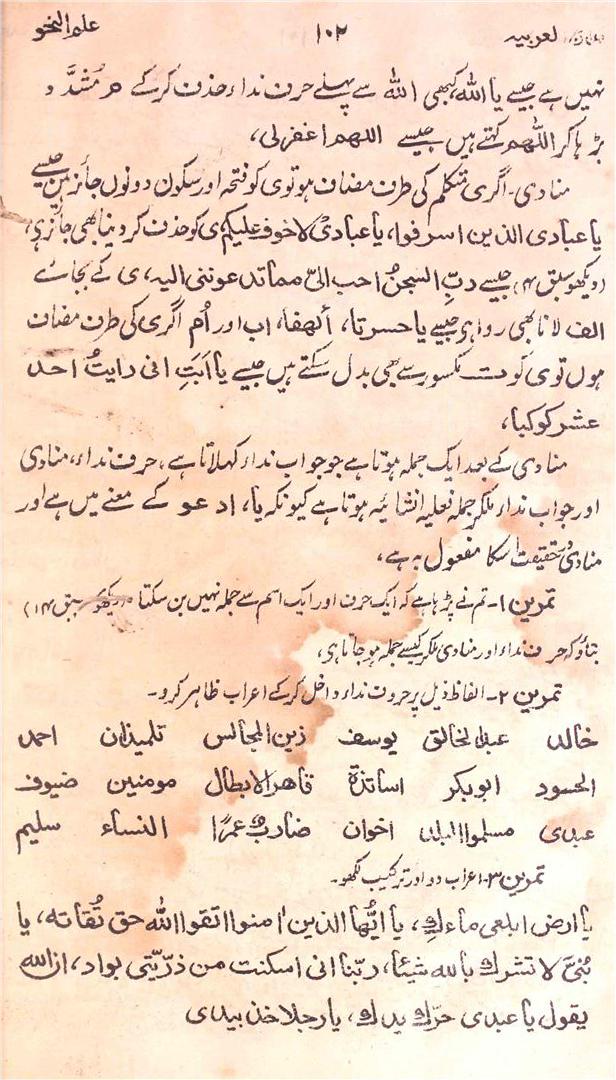 لعربیہ ۱۰۲ علم النحو
نہیں ہے جیسے یا اللہ، کبھی اللہ سے پہلے حرف نداء حذف کرکے م مُشدَّد
بڑہا کر اللھم کہتے ہیں جیسے اللھم اغفرلی،
منادی۔ اگر ی متکلم کی طرف مضاف ہو تو ی کو فتحہ اور سکون دونوں جائز ہیں جیسے
یا عبادی الذین اسرفوا، یا عبادیْ لاخوف علیکم ی کو حذف کر دینا بھی جائز ہی،
(دیکھو سبق ۴) جیسے ربِّ السجنُ احب الیّ مما تدعوننی الیہ، ی کے بجائے
الف لانا بھی روا ہی جیسے یاحسرتا، ألھفا، اب اور اُم اگر ی کی طرف مضاف
ہوں تو ی کو ت مکسور سے بھی بدل سکتے ہیں جیسے یا اَبَتِ انی رایتُ احد
عشر کوکبا،
منادی کے بعد ایک جملہ ہوتا ہے جو جواب نداء کہلاتا ہے، حرف نداء، منادی
اور جواب نداء ملکر جملہ فعلیہ انشائیہ ہوتا ہے کیونکہ یا، ادعو کے معنے میں ہے اور
منادیٰ حقیقت اسکا مفعول بہ ہے،
تمرین ۱۔ تم نے پڑہا ہے کہ ایک حرف اور ایک اسم سے جملہ نہیں بن سکتا (دیکھو سبق ۱۴)
بتاؤ کہ حرف نداء اور منادی ملکر کیسے جملہ ہو جاتا ہی،
تمرین ۲۔ الفاظ ذیل پر حروف نداء داخل کرکے اعراب ظاہر کرو۔
خالد عبدالخالق یوسف زین المجالس تلمیذان احمد
الحسود ابوبکر اساتذۃ قاھر الابطال مومنین ضیوف
عبدی مسلموا البلد اخوان ضاربٌ عمرًا النساء سلیم
تمرین ۳۔ اعراب دو اور ترکیب لکھو۔
یا ارض ابلعی ماءكِ، یا ایُّھا الذین اٰمنوا اتقوا اللہ حق تُقاتہ، یا
بُنیَّ لا تشرك باللہ شیئا، ربّنا انی اسکنت من ذرّیتی بواد، ان اللہ
یقول یا عبدی حرّك یدك، یا رجلا خذ بیدی